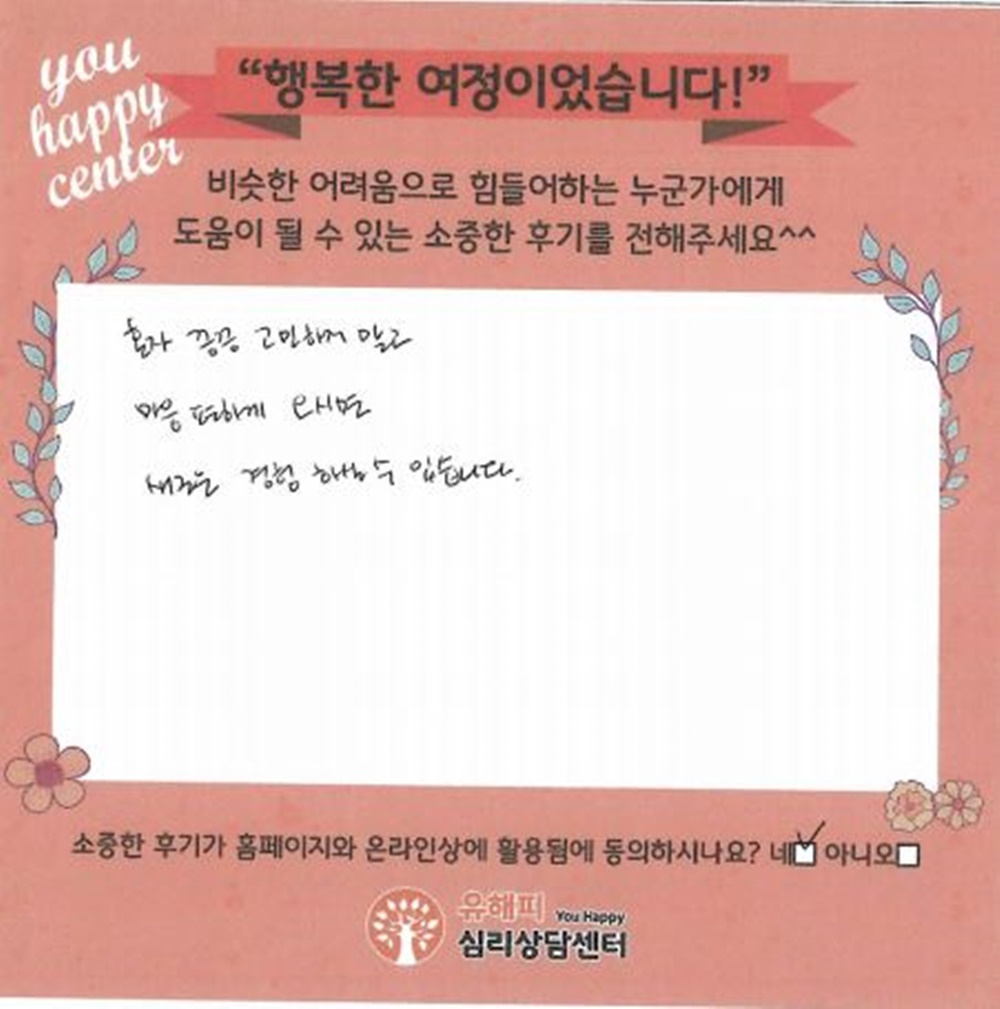 you
happy
center
“행복한 여정이었습니다!”
비슷한 어려움으로 힘들어하는 누군가에게
도움이 될 수 있는 소중한 후기를 전해주세요^^
혼자 끙끙 고민하지 말고
마음 편하게 오시면
새로운 경험 하실 수 있습니다.
소중한 후기가 홈페이지와 온라인상에 활용됨에 동의하시나요? 네 아니오
유해피 You Happy
심리상담센터